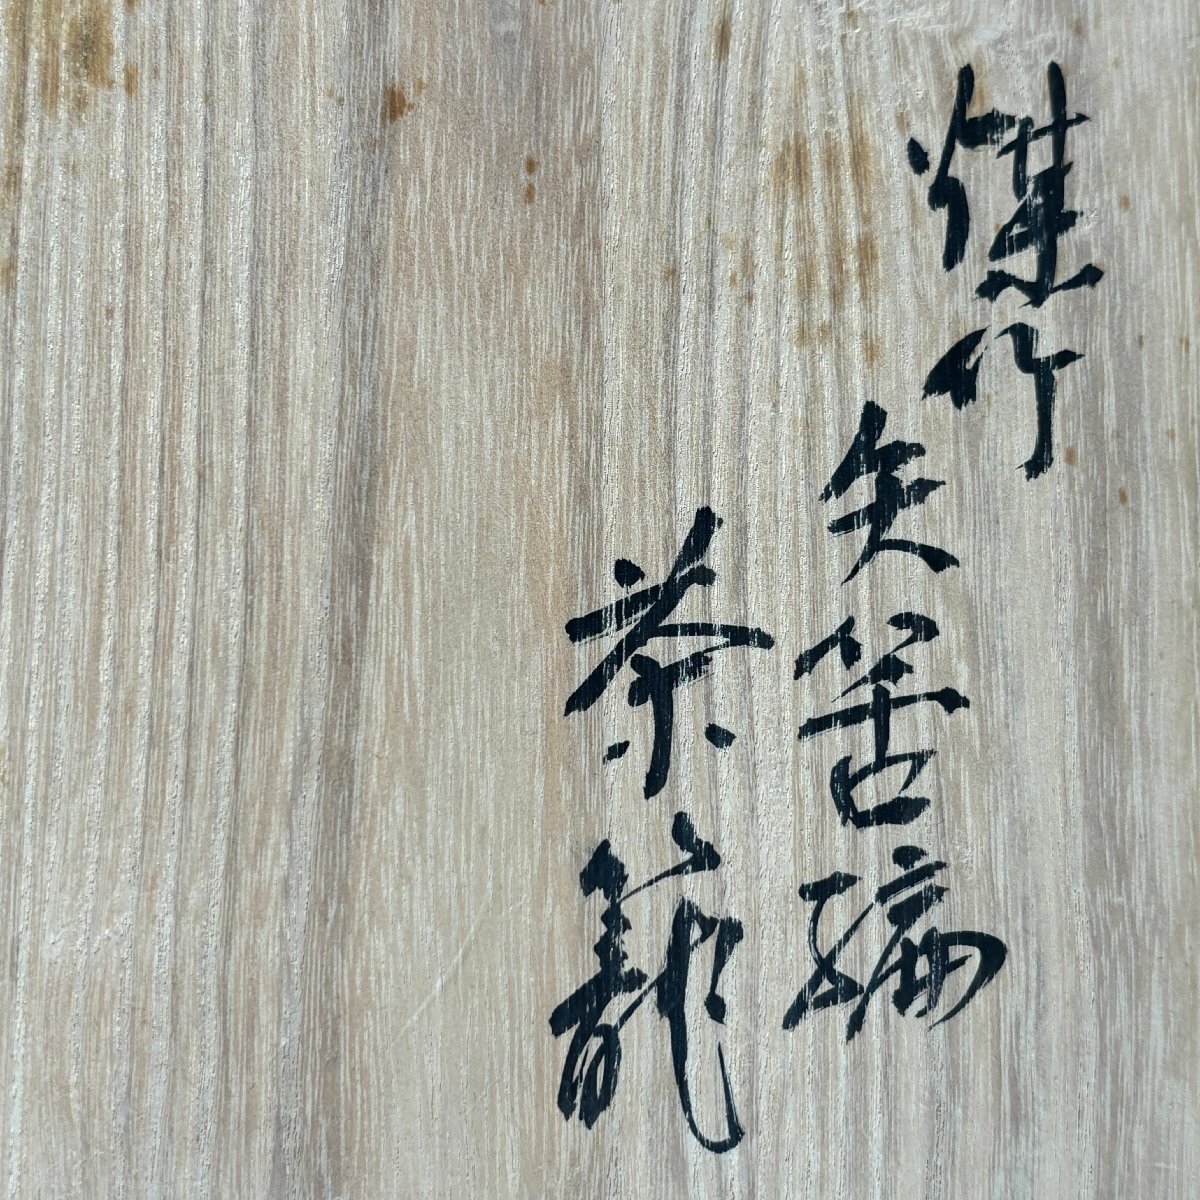 煤竹
矢筈編
茶籠